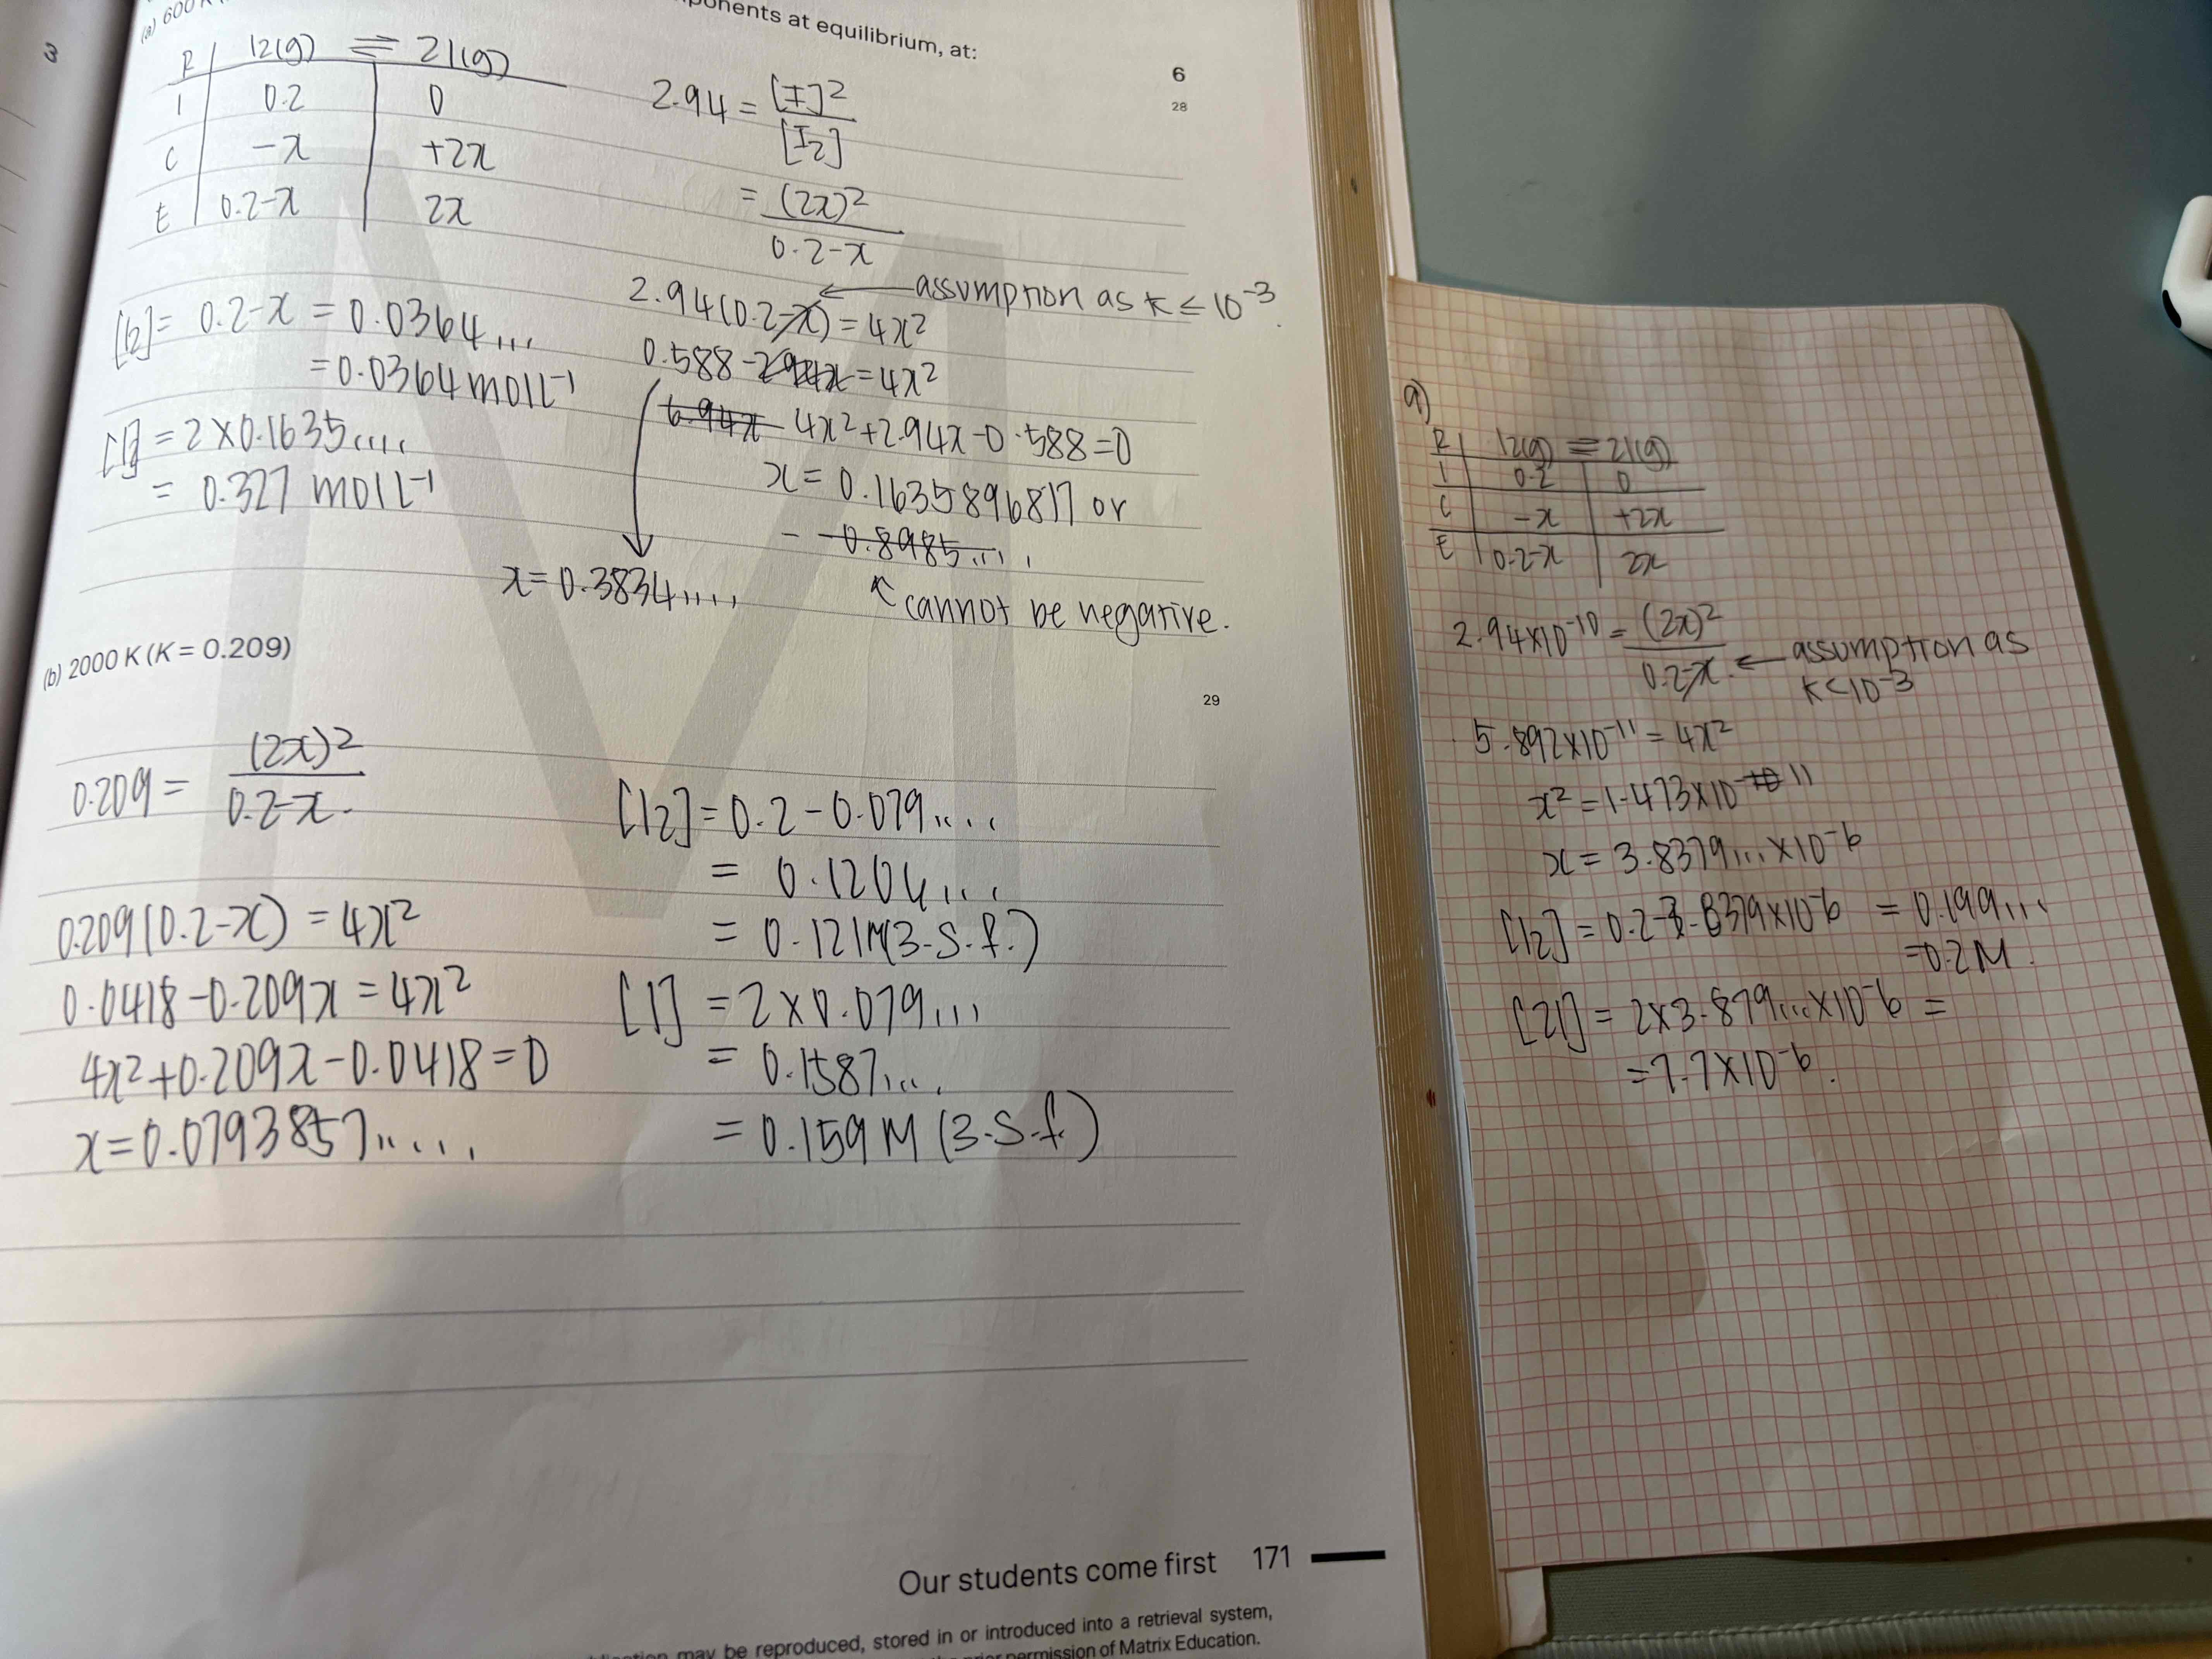 3
(a) 600 K
ponents at equilibrium, at:
6
28
R 12(g) ⇌ 21(g)
I 0.2 0
C -x +2x
E 0.2-x 2x
2.94 = [I]²/[I2]
= (2x)²/0.2-x
2.94(0.2-x) = 4x² ← assumption as K ≤ 10⁻³.
0.588 - 2.94x = 4x²
6.94x 4x²+2.94x-0.588=0
x = 0.1635896817 or
- -0.8985....
↖ cannot be negative.
x=0.3834....
[I2] = 0.2-x = 0.0364...
= 0.0364 mol L⁻¹
[I] = 2×0.1635....
= 0.327 mol L⁻¹
(b) 2000 K (K = 0.209)
29
0.209 = (2x)²/0.2-x.
0.209(0.2-x) = 4x²
0.0418-0.209x = 4x²
4x²+0.209x-0.0418=0
x=0.0793857.....
[I2] = 0.2-0.079....
= 0.1204...
= 0.121M(3.s.f.)
[I] = 2×0.079...
= 0.1587...
= 0.159M (3.s.f.)
Our students come first 171
may be reproduced, stored in or introduced into a retrieval system,
permission of Matrix Education.
a)
R 12(g) ⇌ 21(g)
I 0.2 0
C -x +2x
E 0.2-x 2x
2.94×10⁻¹⁰ = (2x)²/0.2-x. ← assumption as
K<10⁻³
5.892×10⁻¹¹ = 4x²
x² = 1.473×10⁻¹⁰ ¹¹
x = 3.8379...×10⁻⁶
[I2] = 0.2-3.8379×10⁻⁶ = 0.199...
=0.2M.
[2I] = 2×3.879...×10⁻⁶ =
=7.7×10⁻⁶.